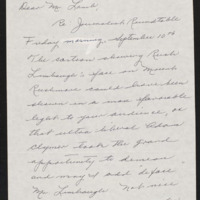 Dear Mr. Lamb:
Re Journalist Roundtable
Friday morning, September 10th
The cartoon showing Rush
Limbaugh's face on Mount
Rushmore could have been
shown in a more favorable
light to your audience, or
that ultra liberal Adam
Clymer took the grand
opportunity to demean
and may I add deface
Mr Limbaugh. Not once